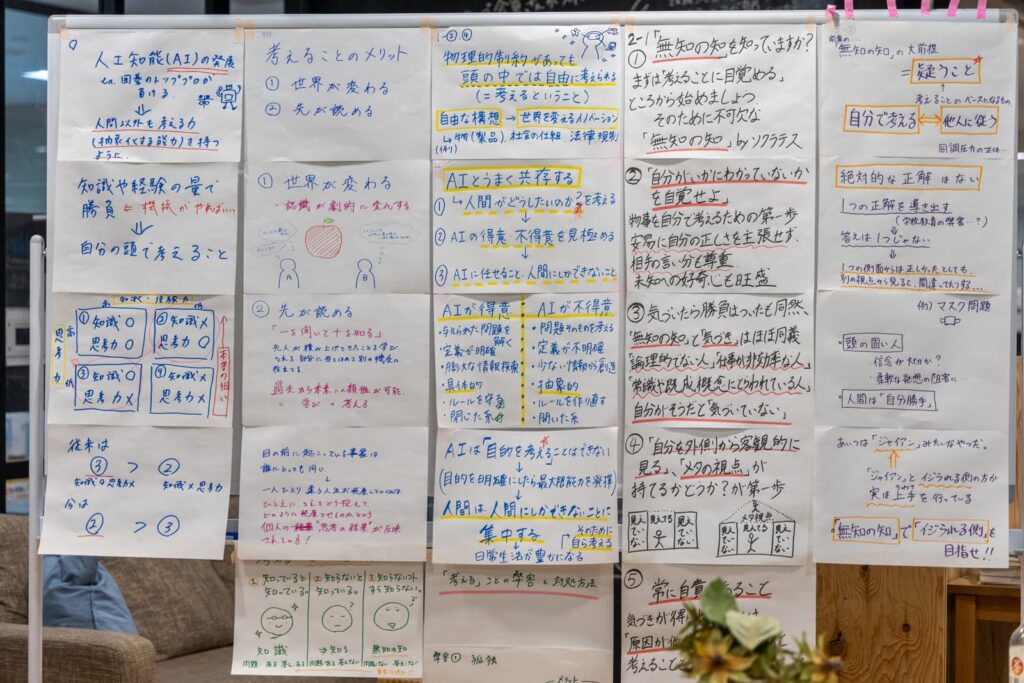 人工知能(AI)の発展
ex. 囲碁のトッププロが
負ける
人間以外も考える力
(抽象化する能力)を持つ
ように
知識や経験の量で
勝負 ← 機械がやればいい…
自分の頭で考えること
知識・経験力
高
低
思考力
高
低
①知識○
思考力○
②知識×
思考力○
③知識○
思考力×
④知識×
思考力×
従来は
③ > ②
知識○思考力×
知識×思考力○
今は
② > ③
考えることのメリット
① 世界が変わる
② 先が読める
① 世界が変わる
= 認識が劇的に変化する
A
B
② 先が読める
「一を聞いて十を知る」
先人が積み上げてきたことを学び
過去から未来への類推が可能
= 学び + 考える
目の前に起こっている事象は
誰にとっても同じ
一人ひとり違う人生が発生しているのは
ひとえに、それをどう捉えて
どのように発展させるのかという
個人の"思考の結果"が反映
されている!
1. 知っていると
知っている。
2. 知らないと
知っている。
3. 知らないコト
すら知らない。
知識
⇒知る
無知の知
②④
物理的制約があっても
頭の中では自由に考えられる
(=考えるということ)
自由な構想 → 世界を変えるイノベーション
(例) 物(製品)、社会の仕組、法律・規則
AIとうまく共存する
① 人間がどうしたいのか?を考える
② AIの得意・不得意を見極める
③ AIに任せること、人間にしかできないこと
AIが得意
・与えられた問題を
解く
・定義が明確
・膨大な情報検索
・具体的
・ルールを守る
・閉じた系
AIが不得意
・問題そのものを考える
・定義が不明確
・少ない情報から創造
・抽象的
・ルールを作り直す
・開いた系
AIは「目的を考える」ことはできない
(目的を明確にしたら最大限能力を発揮)
人間は人間にしかできないことに
集中する
そのために
「自ら考える」
日常生活が豊かになる
「考える」ことの弊害と対処方法
弊害① 孤独
メリット
2-1「無知の知を知っていますか?」
① まずは「考えることに目覚める」
ところから始めましょう
そのために不可欠な
「無知の知」by ソクラテス
② 「自分がいかにわかっていないか
を自覚せよ」
物事を自分で考えるための第一歩
安易に自分の正しさを主張せず、
相手の言い分も尊重
未知への好奇心も旺盛
③ 気づいたら勝負はついたも同然、
「無知の知」と「気づき」はほぼ同義
「論理的でない人」「仕事が非効率な人」
「常識や既成概念にとらわれている人」
自分がそうだと「気づいていない」
④ 「自分を外側から客観的に
見る」、「メタの視点」が
持てるかどうか?が第一歩
見えていない
見えてる
見えていない
メタ視点
見えていない
見えてる
見えていない
⑤ 常に自覚
ること
気づきが得
「原因が他
考えること
「無知の知」の大前提
= 疑うこと
考えることのベースとなるもの
自分で考える ⇔ 他人に従う
同調圧力の正体…
絶対的な正解はない
1つの正解を導き出す
(学校教育の弊害…?)
答えは1つじゃない
1つの側面からは正しかったとしても
別の視点から見ると、間違ってたりする…
例) マスク問題
・頭の固い人
信念が大切か?
柔軟な発想の阻害に…
・人間は「自分勝手」
あいつは「ジャイアン」みたいなやつだ。
「ジャイアン」とイジられる側の方が
実は上手を行っている
うわて
「無知の知」で「イジられる側」を
目指せ!!